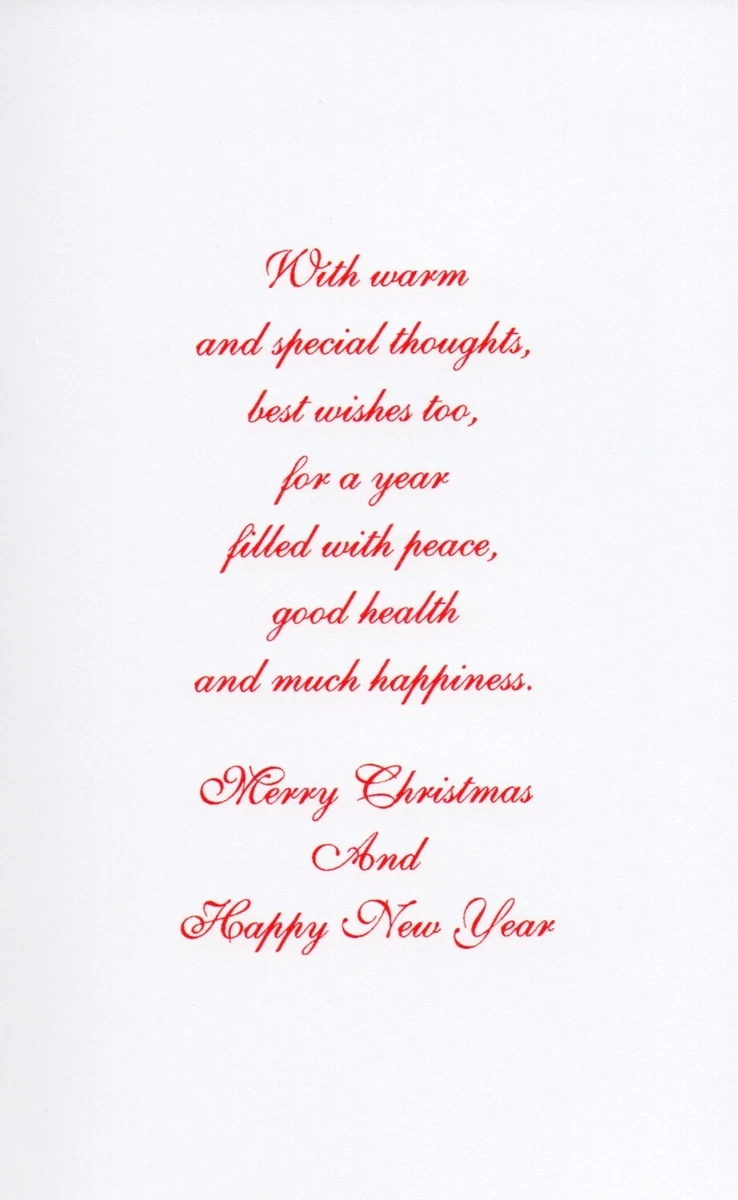 With warm
and special thoughts,
best wishes too,
for a year
filled with peace,
good health
and much happiness.
Merry Christmas
And
Happy New Year